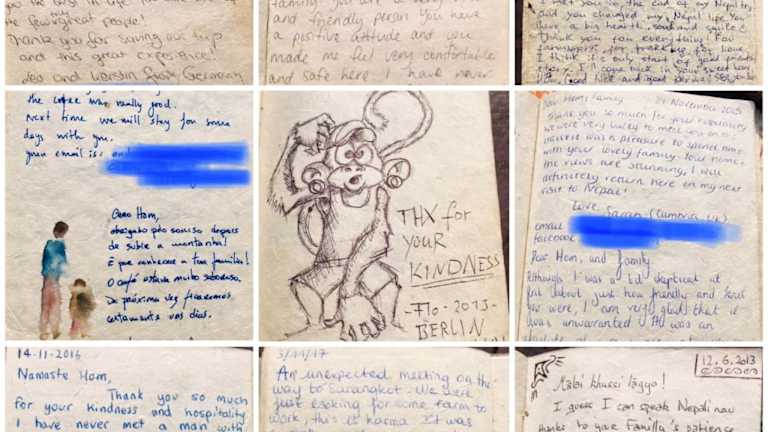 the few great people!
Thank you for saving our trip
and this great experience!
and Kerstin from Germany
and friendly person You have
a positive attitude and you
made me feel very comfortable
and safe here I have never
and you changed my Nepal life You
have a big heart soul and smile!
Thank you for everything! For
the coffee was really good.
Next time we will stay for some
days with you.
your email is:
Caro Hom,
obrigado pelo sorriso depois
de subir a montanha!
E por conhecer a tua família!
O café estava muito saboroso.
Da próxima vez ficaremos
certamente uns dias.
THX for
YOUR
KINDNESS
-FLO-2013-
BERLIN
Dear Hom, Family 24 November 2015
Thank you so much for your hospitality
we were very lucky to meet you on our
was a pleasure to spend time
with your lovely family. Your home &
the views are stunning, I will
definitely return here on my next
visit to Nepal!
Love, Sarah (Cumbria, UK)
email
facebook
Dear Hom, and family
Although I was a lil' skeptical at
first about just how friendly and kind
you were, I am very glad that it
was unwarranted. It was an
14-11-2016
Namaste Hom,
Thank you so much
for your kindness and hospitality
I have never met a man with
3/11/17
An unexpected meeting on the
way to Sarangkot. We were
just looking for some farm to
work, this is karma. It was
12.6.2013
khussi laggyo!
I guess I can speak Nepali now
thanks to your familly's patience